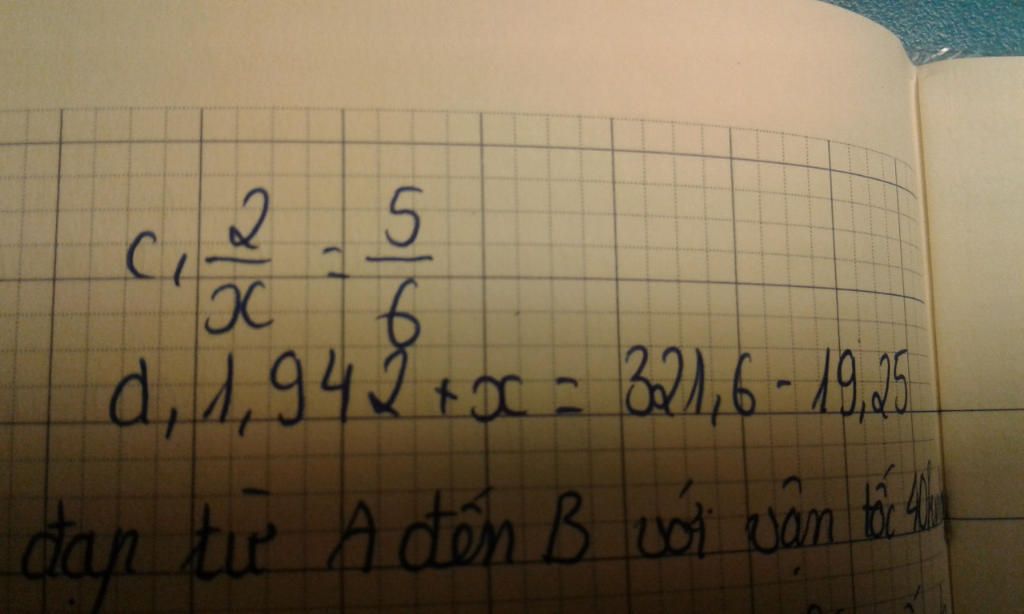 c, 2/x = 5/6
d, 1,942 + x = 321,6 - 19,25
đạp từ A đến B với vận tốc